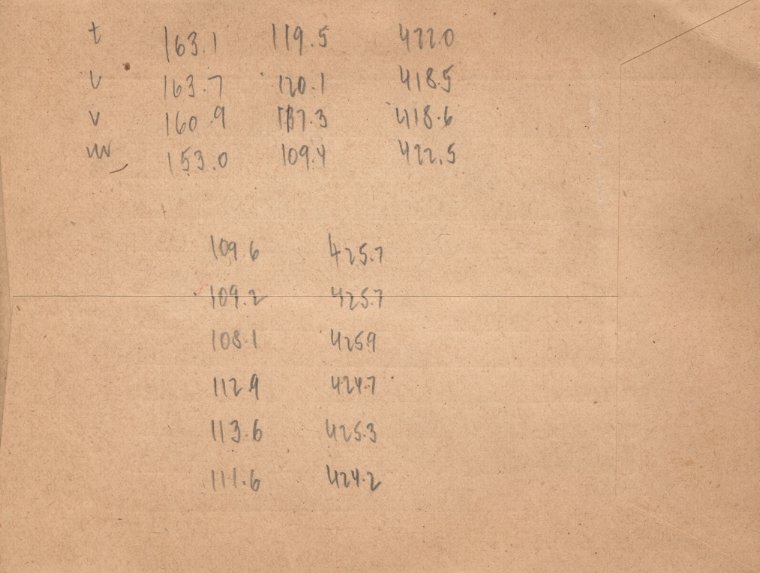 t 163.1 119.5 422.0
u 163.7 120.1 418.5
v 160.9 117.3 418.6
w 153.0 109.4 422.5
109.6 425.7
109.2 425.7
108.1 425.9
112.9 424.7
113.6 425.3
111.6 424.2